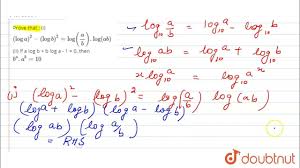 Prove that : (i)
(log a)² - (log b)² = log(a/b) . log(ab)
(ii) If a log b + b log a - 1 = 0, then
bᵃ . aᵇ = 10
log₁₀ a/b = log₁₀ a - log₁₀ b
log₁₀ ab = log₁₀ a + log₁₀ b
x log₁₀ a = log₁₀ aˣ
(i) (log a)² - (log b)² = log(a/b) log (ab)
(log a + log b) (log a - log b)
(log ab) (log a/b)
= RHS
doubtnut